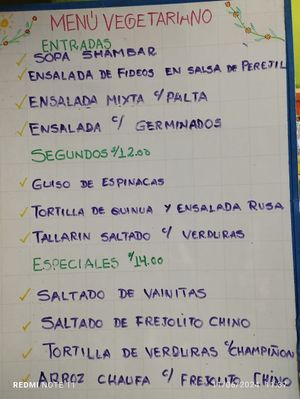 MENÚ VEGETARIANO
ENTRADAS
SOPA SHAMBAR
ENSALADA DE FIDEOS EN SALSA DE PEREJIL
ENSALADA MIXTA C/PALTA
ENSALADA C/ GERMINADOS
SEGUNDOS S/12.00
GUISO DE ESPINACAS
TORTILLA DE QUINUA Y ENSALADA RUSA
TALLARIN SALTADO C/ VERDURAS
ESPECIALES S/14.00
SALTADO DE VAINITAS
SALTADO DE FREJOLITO CHINO
TORTILLA DE VERDURAS C/CHAMPIÑON
ARROZ CHAUFA C/ FREJOLITO CHINO
REDMI NOTE 11